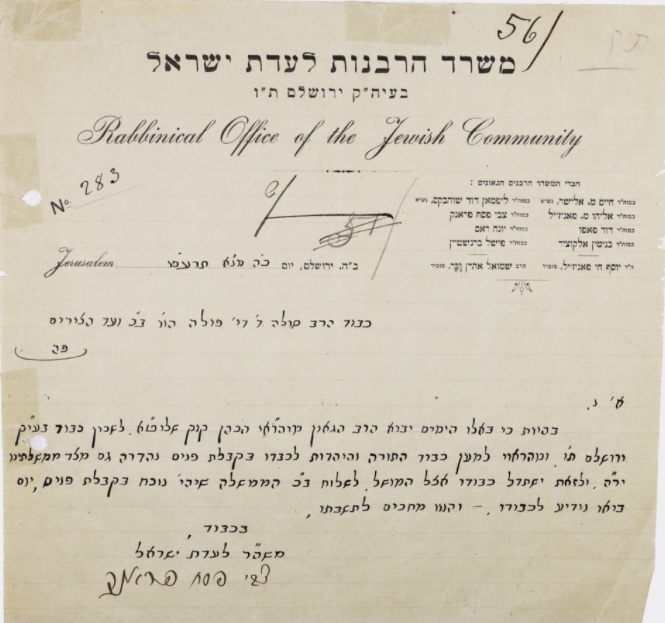 56/
משרד הרבנות לעדת ישראל
בעיה"ק ירושלם ת"ו
Rabbinical Office of the Jewish Community
No. 283
חברי המשרד הרבנים הגאונים:
כמוה"ר חיים מ. אלישר, נשיא כמוה"ר ליפמאן דוד שוהבקס, נשיא
כמוה"ר אליהו מ. פאניז'יל כמוה"ר צבי פסח פראנק
כמוה"ר דוד פאפו כמוה"ר יונה ראם
כמוה"ר בנימין אלקוציר כמוה"ר פישל ברנשטיין
ה"ר יוסף חי פאניז'יל, מזכיר הרב שמואל אהרן וֶבֶּר, מזכיר
Jerusalem ב"ה. ירושלם, יום
כבוד הרב
פה
א' נ.
בהיות כי באלו הימים יבוא הרב הגאון מוהרא"י הכהן קוק שליט"א לשכון כבוד בעיה"ק
ירושלם תו', ומהראוי למען כבוד התורה והיהדות לכבדו בקבלת פנים נהדרה גם מצד ממשלתינו
יר"ה, ולזאת ישתדל כבודו אצל המושל לשלוח ב"כ הממשלה שיהי' נוכח בקבלת פנים, יום
בואו נודיע לכבודו. – והננו מחכים לתשובתו,
בכבוד,
משה"ר לעדת ישראל
צבי פסח פראנק